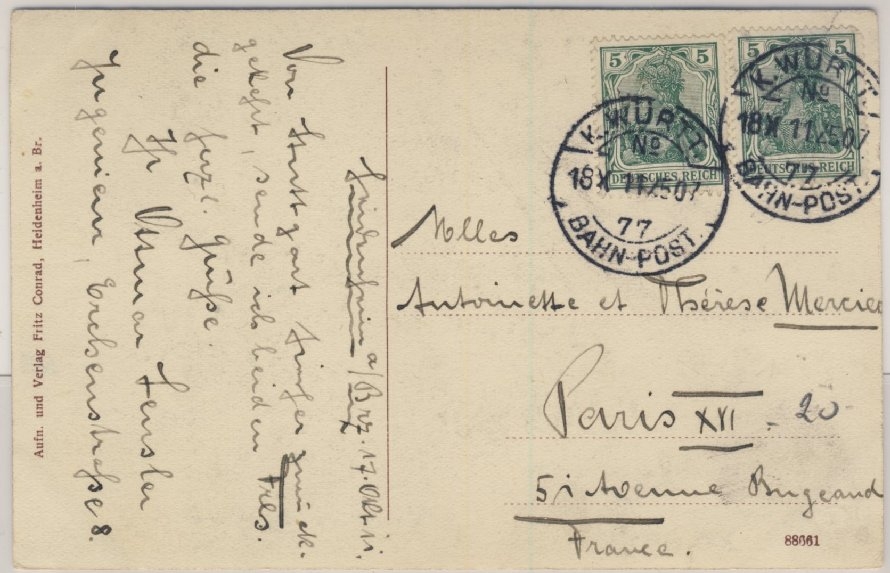 Heidenheim a/Brz. 17. Okt. 11.
Von Stuttgart hierher zurück-
gekehrt, sende ich beiden Frls.
die herzl. Grüße.
Ihr Otmar Fensler
Ingenieur, Erchenstraße 8.
Aufn. und Verlag Fritz Conrad, Heidenheim a. Br.
5 5
DEUTSCHES REICH
5 5
DEUTSCHES REICH
K. WÜRTT.
No
18 X 11 / 507
77
BAHN-POST
K. WÜRTT.
No
18 X 11 / 507
77
BAHN-POST
Melles
Antoinette et Thérèse Mercier
Paris XVI. 20
51 Avenue Bugeaud
France.
88661